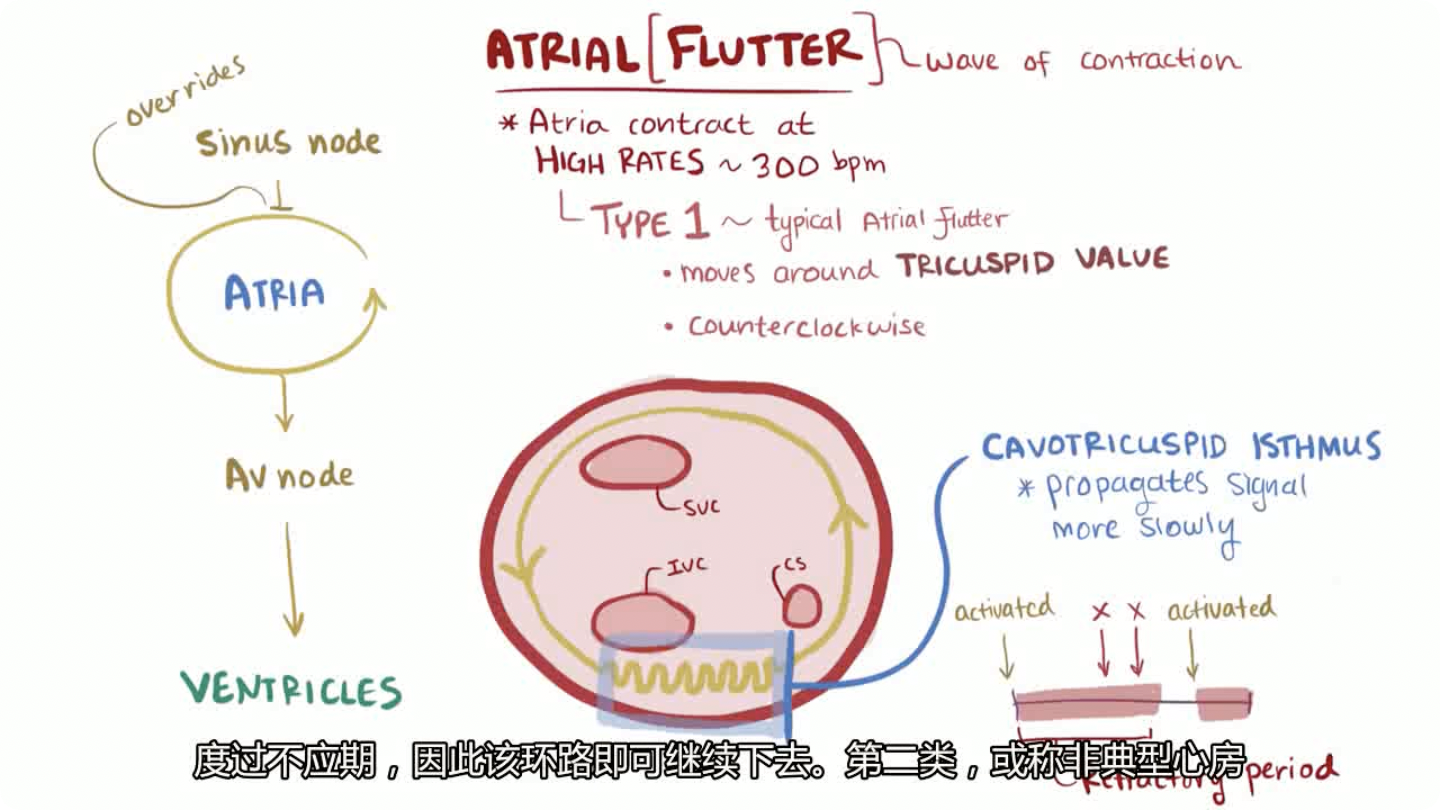 ATRIAL [FLUTTER] wave of contraction
overrides
Sinus node
* Atria contract at
HIGH RATES ~ 300 bpm
TYPE 1 ~ typical Atrial flutter
• moves around TRICUSPID VALUE
• Counterclockwise
ATRIA
AV node
VENTRICLES
SVC
IVC
CS
CAVOTRICUSPID ISTHMUS
* propagates signal
more slowly
activated x x activated
Refractory period
度过不应期，因此该环路即可继续下去。第二类，或称非典型心房